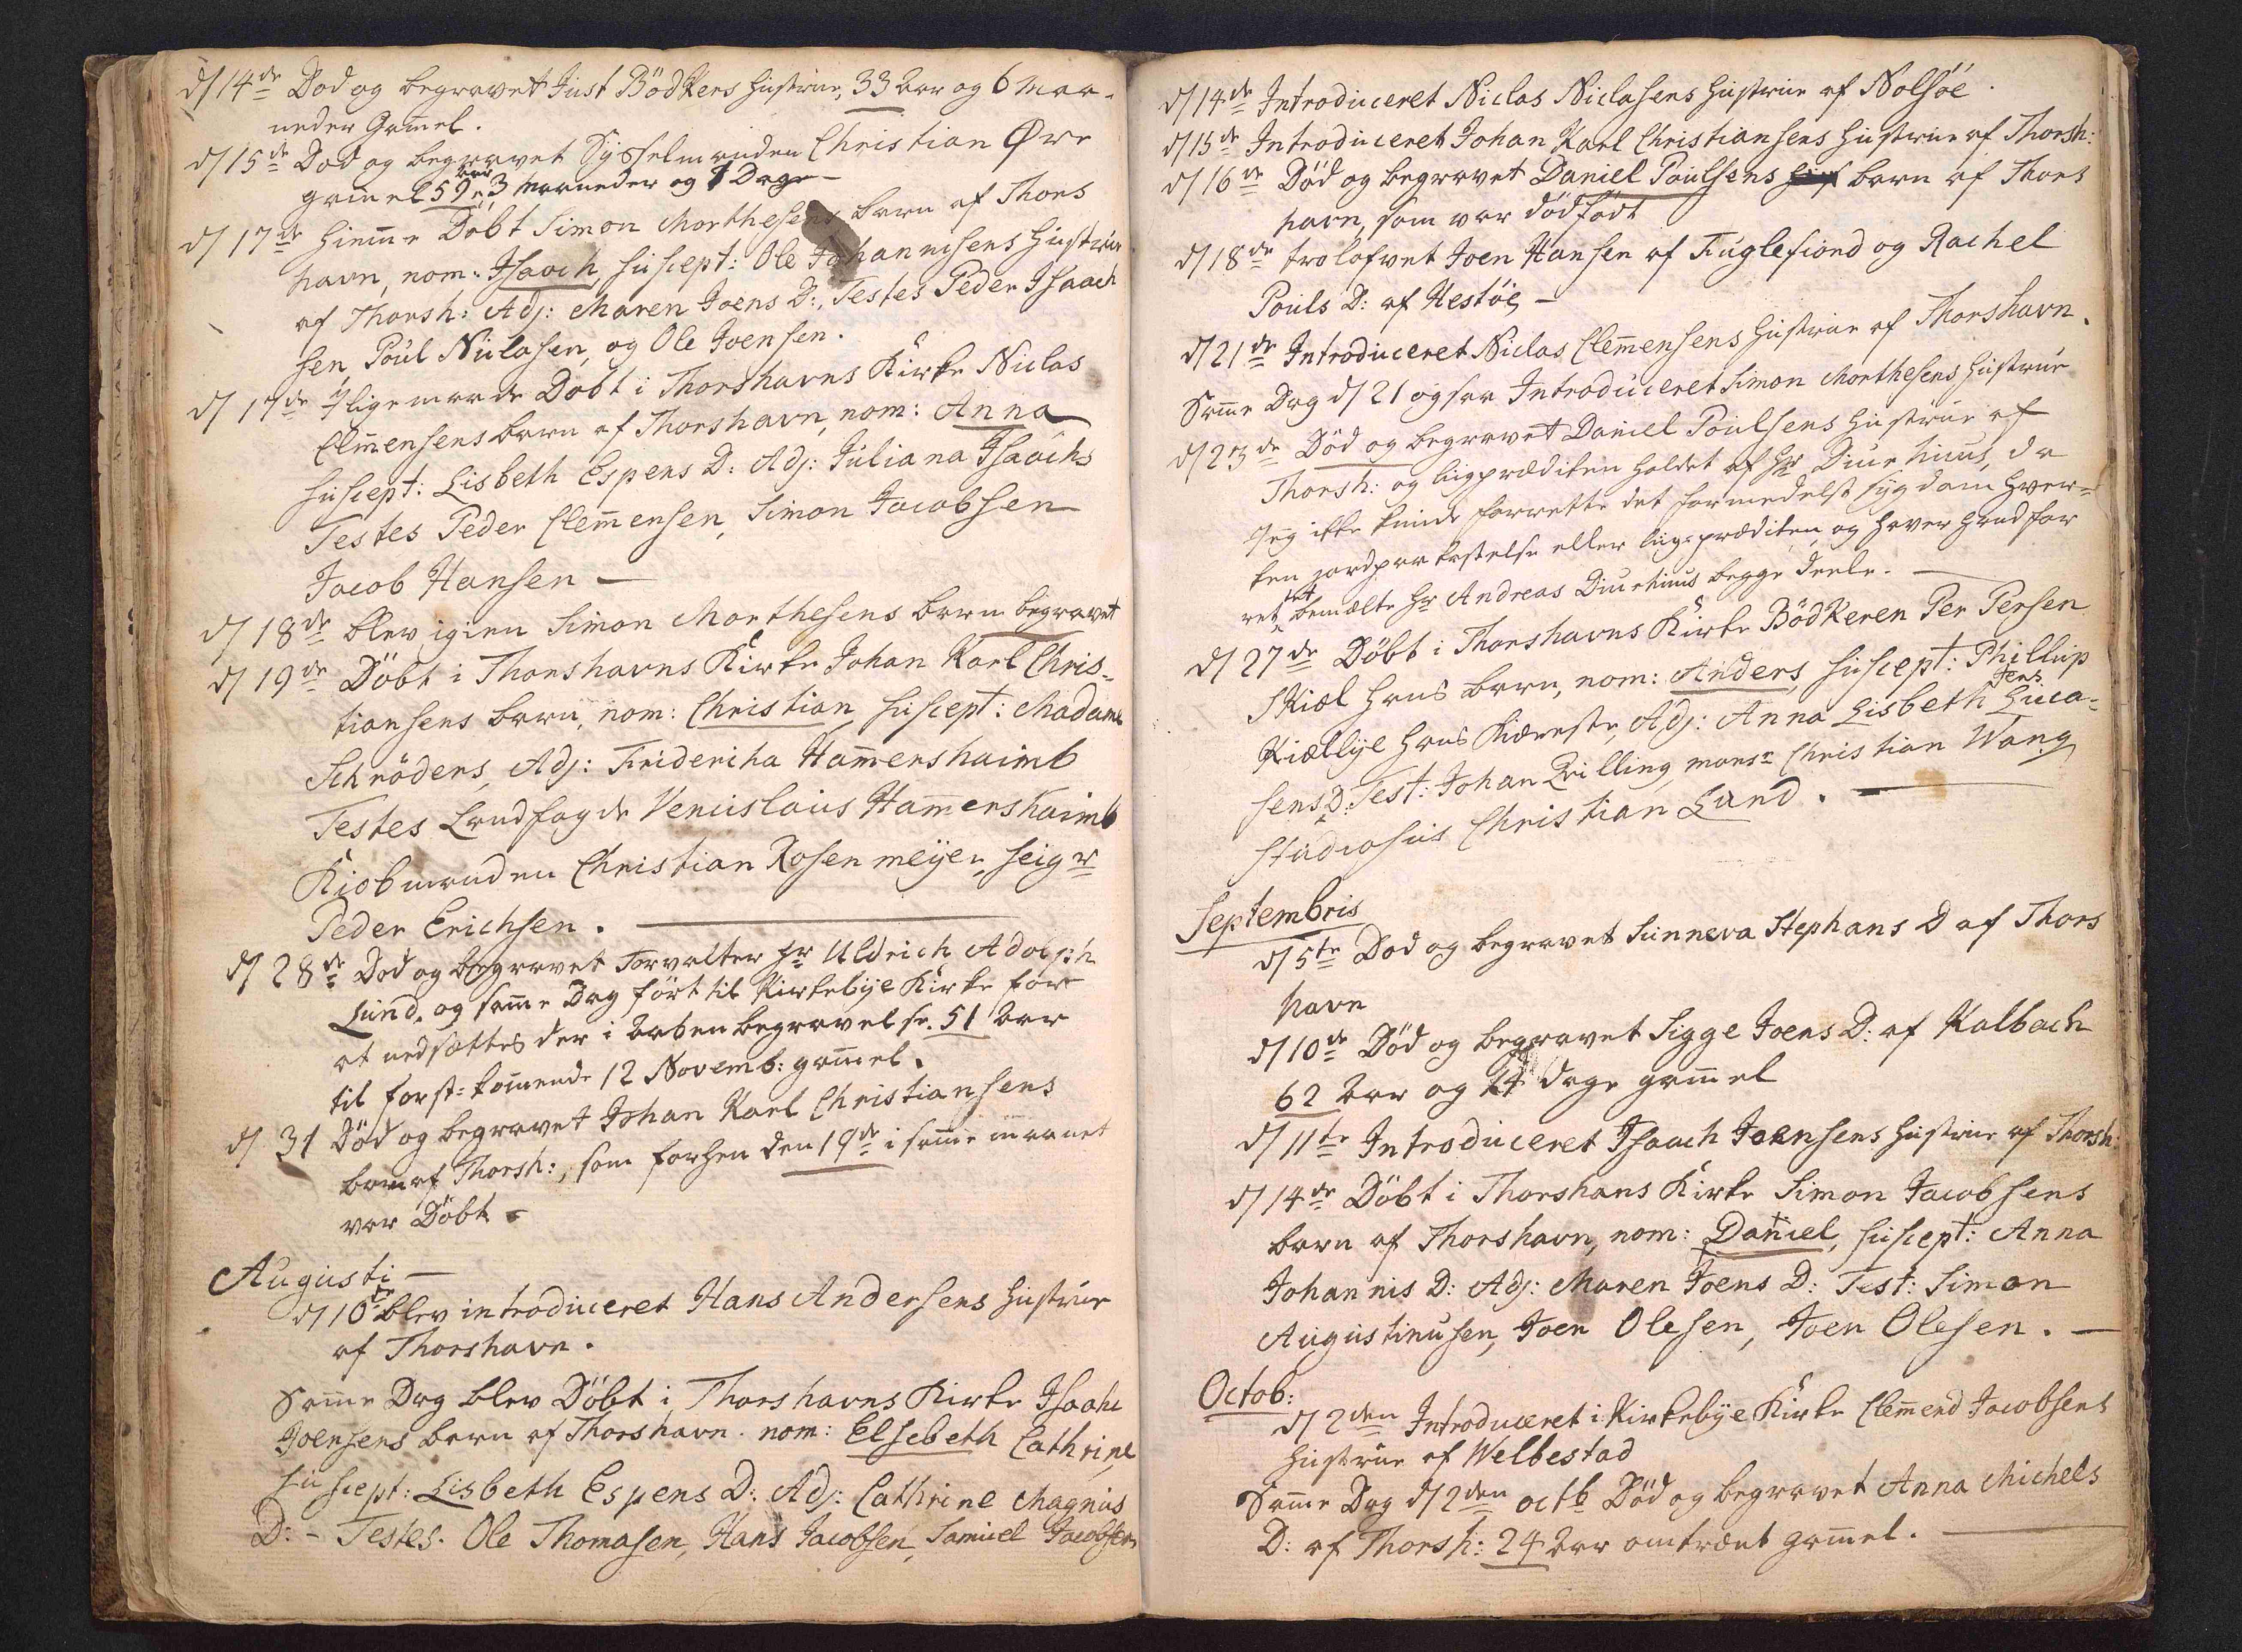 d/ 14de Død og begravet Just Bödkers Hustrue, 33 Aar og 6 Maa-
neder Gam̄el.
d/ 15de Død og begravet Sysselmanden Christian Øre
gam̄el 59 Aar 3 Maaneder og 1 Dage —
d/ 17de Hiem̄e Døbt Simon Morthesens barn af Thors
havn, nom: Isaach, suscept: Ole Johannesens Hustrue
af Thorsh: Adj: Maren Joens D:, Testes Peder Isaach
sen, Poul Niclasen, og Ole Joensen.
d/ 17de Iligemaade Døbt i Thorshavns Kirke Niclas
Clem̄ensens barn af Thorshavn, nom: Anna
suscept: Lisbeth Espens D: Adj: Juliana Isaachs
Testes Peder Clem̄ensen, Simon Jacobsen
Jacob Hansen —
d/ 18de blev igien Simon Morthesens barn begravet
d/ 19de Døbt i Thorshavns Kirke Johan Karl Chris-
tiansens barn, nom: Christian, suscept: Madame
Schröders, Adj: Friderica Ham̄ershaimb
Testes Landfogde Venceslaus Ham̄ershaimb
Kiobmanden Christian Rosenmeÿer, seigr
Peder Erichsen. —
d/ 28de Død og begravet Forvalter Hr Uldrich Adolph
Lund, og sam̄e Dag ført til Kirkebÿe Kirke for
at nedsættes der i Aaben begravelse. 51 Aar
til først-kom̄ende 12 Novemb: gam̄el.
d/ 31 Død og begravet Johan Karl Christiansens
barn af Thorsh:, som forhen den 19de i sam̄e maanet
var Døbt —
Augusti —
d/ 10de blev introduceret Hans Andersens Hustrue
af Thorshavn.
Sam̄e Dag blev Døbt i Thorshavns Kirke Isaahc
Joensens barn af Thorshavn. nom: Elsebeth Cathrine
suscept: Lisbeth Espens D: Adj: Cathrine Magnus
D: - Testes. Ole Thomasen, Hans Jacobsen, Samuel Jacobsen
d/ 14de Introduceret Niclas Niclasens Hustrue af Nolsöe.
d/ 15de Introduceret Johan Karl Christiansens Hustrue af Thorsh:
d/ 16de Död og begravet Daniel Poulsens barn af Thors
havn, som var dödfödt
d/ 18de trolofvet Joen Hansen af Fuglefiord og Rachel
Pouls D: af Hestöe —
d/ 21de Introduceret Niclas Clem̄ensens Hustrue af Thorshavn.
Sam̄e Dag d/ 21 ogsaa Introduceret Simon Morthesens Hustrue
d/ 23de Död og begravet Daniel Poulsens Hustrue af
Thorsh: og liigprædiken holdet af Hr Diurhuus, da
Jeg ikke kunde forrette det formedelst sÿgdom hver-
ken jordpaakastelse eller liig-prædiken, og haver Hand for
rettet bemælte Hr Andreas Diurhuus begge deele. —
d/ 27de Döbt i Thorshavns Kirke Bödkeren Per Persen
Skiæl Hans barn, nom: Anders, suscept: Phillip
Kiællÿe Hans Kiæreste, Adj: Anna Lisbeth Jens Luca-
sens D: Test: Johan Qvilling, monsr Christian Wang
studiosus Christian Lund. —
Septembris
d/ 5te Død og begravet Sunneva Stephans D af Thors
havn
d/ 10de Död og begravet Sigge Joens D: af Kalbach
62 Aar og 14 dage gam̄el
d/ 11te Introduceret Isaach Joensens Hustrue af Thorsh:
d/ 14de Döbt i Thorshans Kirke Simon Jacobsens
barn af Thorshavn, nom: Daniel, suscept: Anna
Johannis D: Adj: Maren Joens D: Test: Simon
Augustinusen, Joen Olesen, Joen Olesen. —
Octob:
d/ 2den Introduceret i Kirkebÿe Kirke Clem̄end Jacobsens
Hustrue af Welbestad
Sam̄e Dag d/ 2den octb Död og begravet Anna Michels
D: af Thorsh: 24 Aar omtrænt gam̄el. —